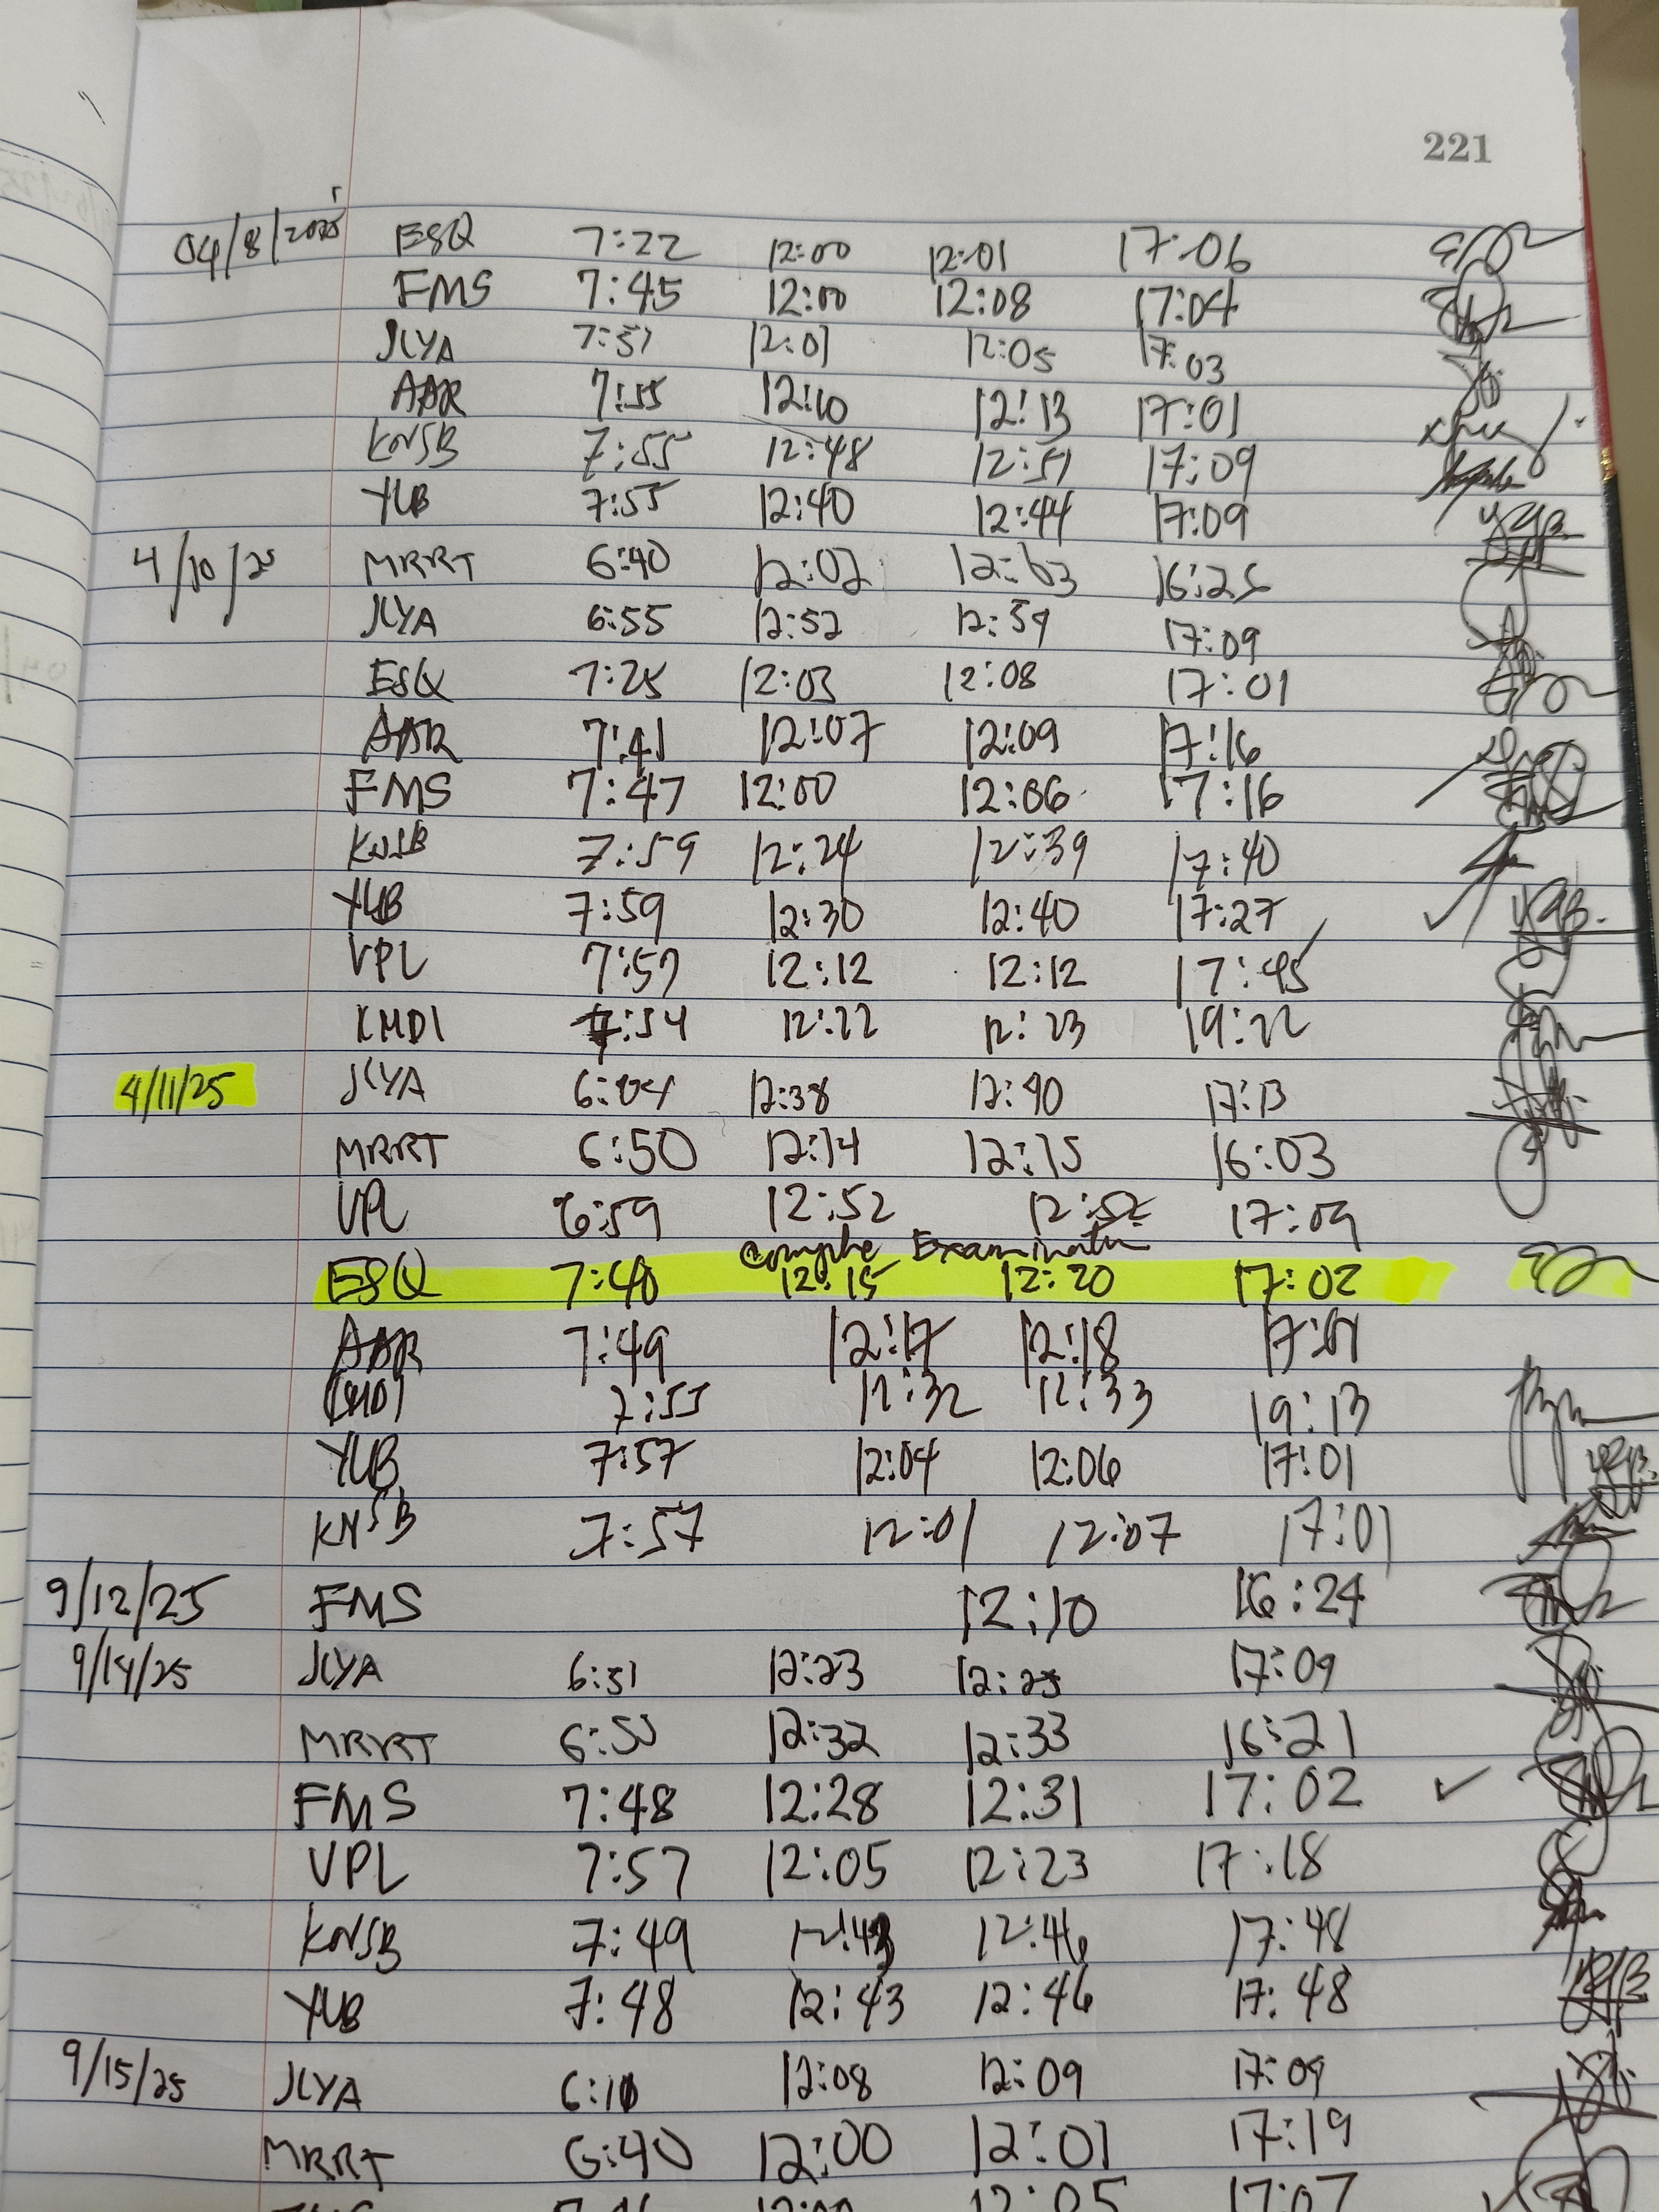 221
04/8/2025 ESQ 7:22 12:00 12:01 17:06
FMS 7:45 12:00 12:08 17:04
JLYA 7:51 12:01 12:05 17:03
AAR 7:55 12:10 12:13 17:01
KNSB 7:55 12:48 12:51 17:09
YUB 7:55 12:40 12:44 17:09
4/10/25 MRRT 6:40 12:02 12:03 16:25
JLYA 6:55 12:52 12:59 17:09
ESQ 7:25 12:03 12:08 17:01
AAR 7:41 12:07 12:09 17:16
FMS 7:47 12:00 12:06 17:16
KNSB 7:59 12:24 12:39 17:40
YUB 7:59 12:30 12:40 17:27
VPL 7:57 12:12 12:12 17:45
KMDI 7:54 12:22 12:23 19:22
4/11/25 JLYA 6:04 12:38 12:40 17:13
MRRT 6:50 12:14 12:15 16:03
VPL 6:59 12:52 12:52 17:09
Compre Examination
ESQ 7:40 12:15 12:20 17:02
AAR 7:49 12:17 12:18 17:01
KMDI 7:55 12:32 12:33 19:13
YUB 7:57 12:04 12:06 17:01
KNSB 7:57 12:01 12:07 17:01
9/12/25 FMS 12:10 16:24
9/14/25 JLYA 6:51 12:23 12:25 17:09
MRRT 6:55 12:32 12:33 16:21
FMS 7:48 12:28 12:31 17:02
VPL 7:57 12:05 12:23 17:18
KNSB 7:49 12:43 12:46 17:48
YUB 7:48 12:43 12:46 17:48
9/15/25 JLYA 6:10 12:08 12:09 17:09
MRRT 6:40 12:00 12:01 17:19
12:05 17:07